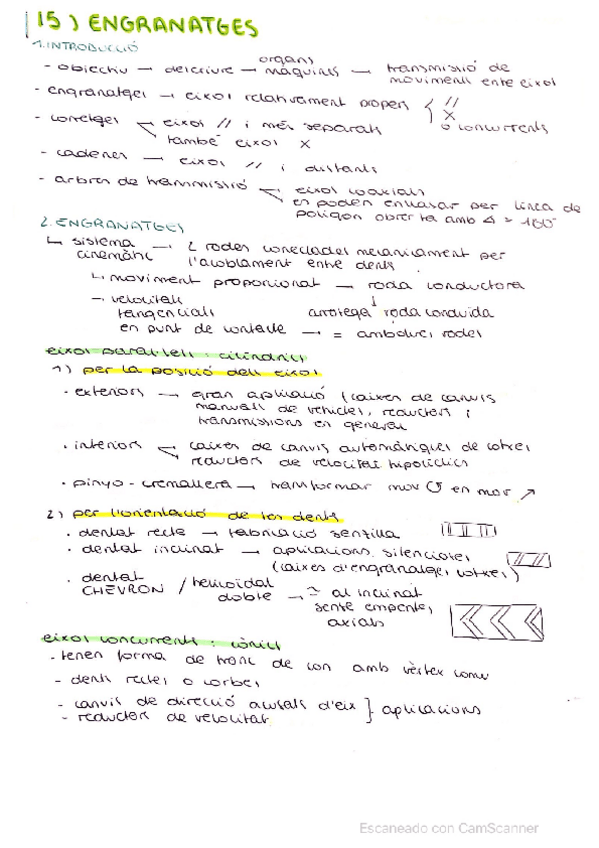 15) ENGRANATGES
1. INTRODUCCIÓ
- objectiu → descriure → organs màquines → transmissió de
moviments entre eixos
- engranatges → eixos relativament propers { //
X
o concurrents
- corretges eixos // i més separats
també eixos X
- cadenes → eixos // i distants
- arbres de transmissió eixos coaxials
es poden enllaçar per línea de
polígon oberta amb
2. ENGRANATGES
↳ sistema cinemàtic → 2 rodes conectades mecànicament per
l'acoblament entre dents
↳ moviment proporcional → roda conductora
↓
arrossega roda conduida
→ velocitats
tangencials
en punt de contacte → = ambdues rodes
eixos paral·lels: cilíndrics
1) per la posició dels eixos
· exteriors → gran aplicació (caixes de canvis
manuals de vehicles, reductors i
transmissions en general
· interiors caixes de canvis automàtiques de cotxes
reductors de velocitat
· pinyo-cremallera → transformar mov ↺ en mov ↗
2) per l'orientació de les dents
· dentat recte → fabricació senzilla
· dentat inclinat → aplicacions silencioses
(caixes d'engranatges cotxes)
· dentat
CHEVRON / helicoidal
doble → ≃ al inclinat
sense empentes
axials
eixos concurrents: cònics
- tenen forma de tronc de con amb vèrtex comú
- dents rectes o corbes
- canvis de direcció acusats d'eix } aplicacions
- reductors de velocitat
Escaneado con CamScanner